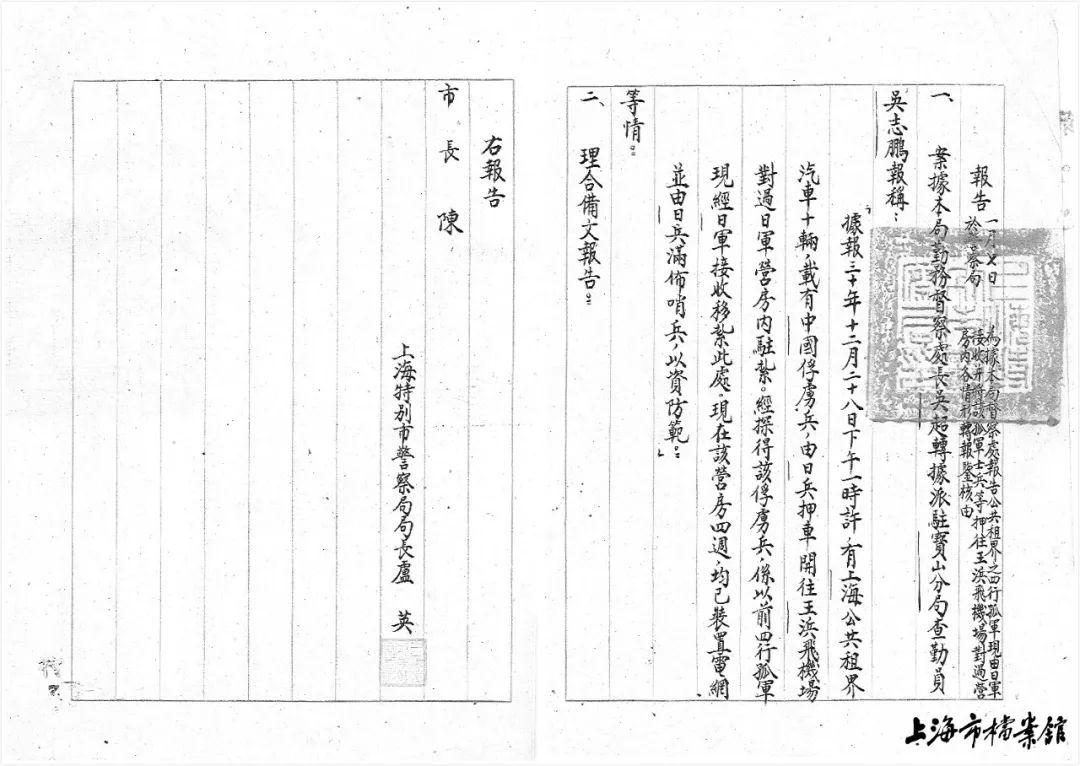 報告 一月七日
於警察局
為據本局督察處報告公共租界之四行孤軍現由日軍
接收并將該孤軍士兵等押往王浜飛機場對過營
房內各情形轉報鑒核由
一、案據本局勤務督察處長吳超轉據派駐寶山分局查勤員
吳志鵬報稱：
「據報三十年十二月二十八日下午一時許，有上海公共租界
汽車十輛，載有中國俘虜兵，由日兵押車開往王浜飛機場
對過日軍營房內駐紮。經探得該俘虜兵，係以前四行孤軍
現經日軍接收移紮此處。現在該營房四週，均已裝置電網
並由日兵滿佈哨兵，以資防範。」
等情。
二、理合備文報告。
右報告
市長 陳
上海特別市警察局局長盧 英
上海市檔案館